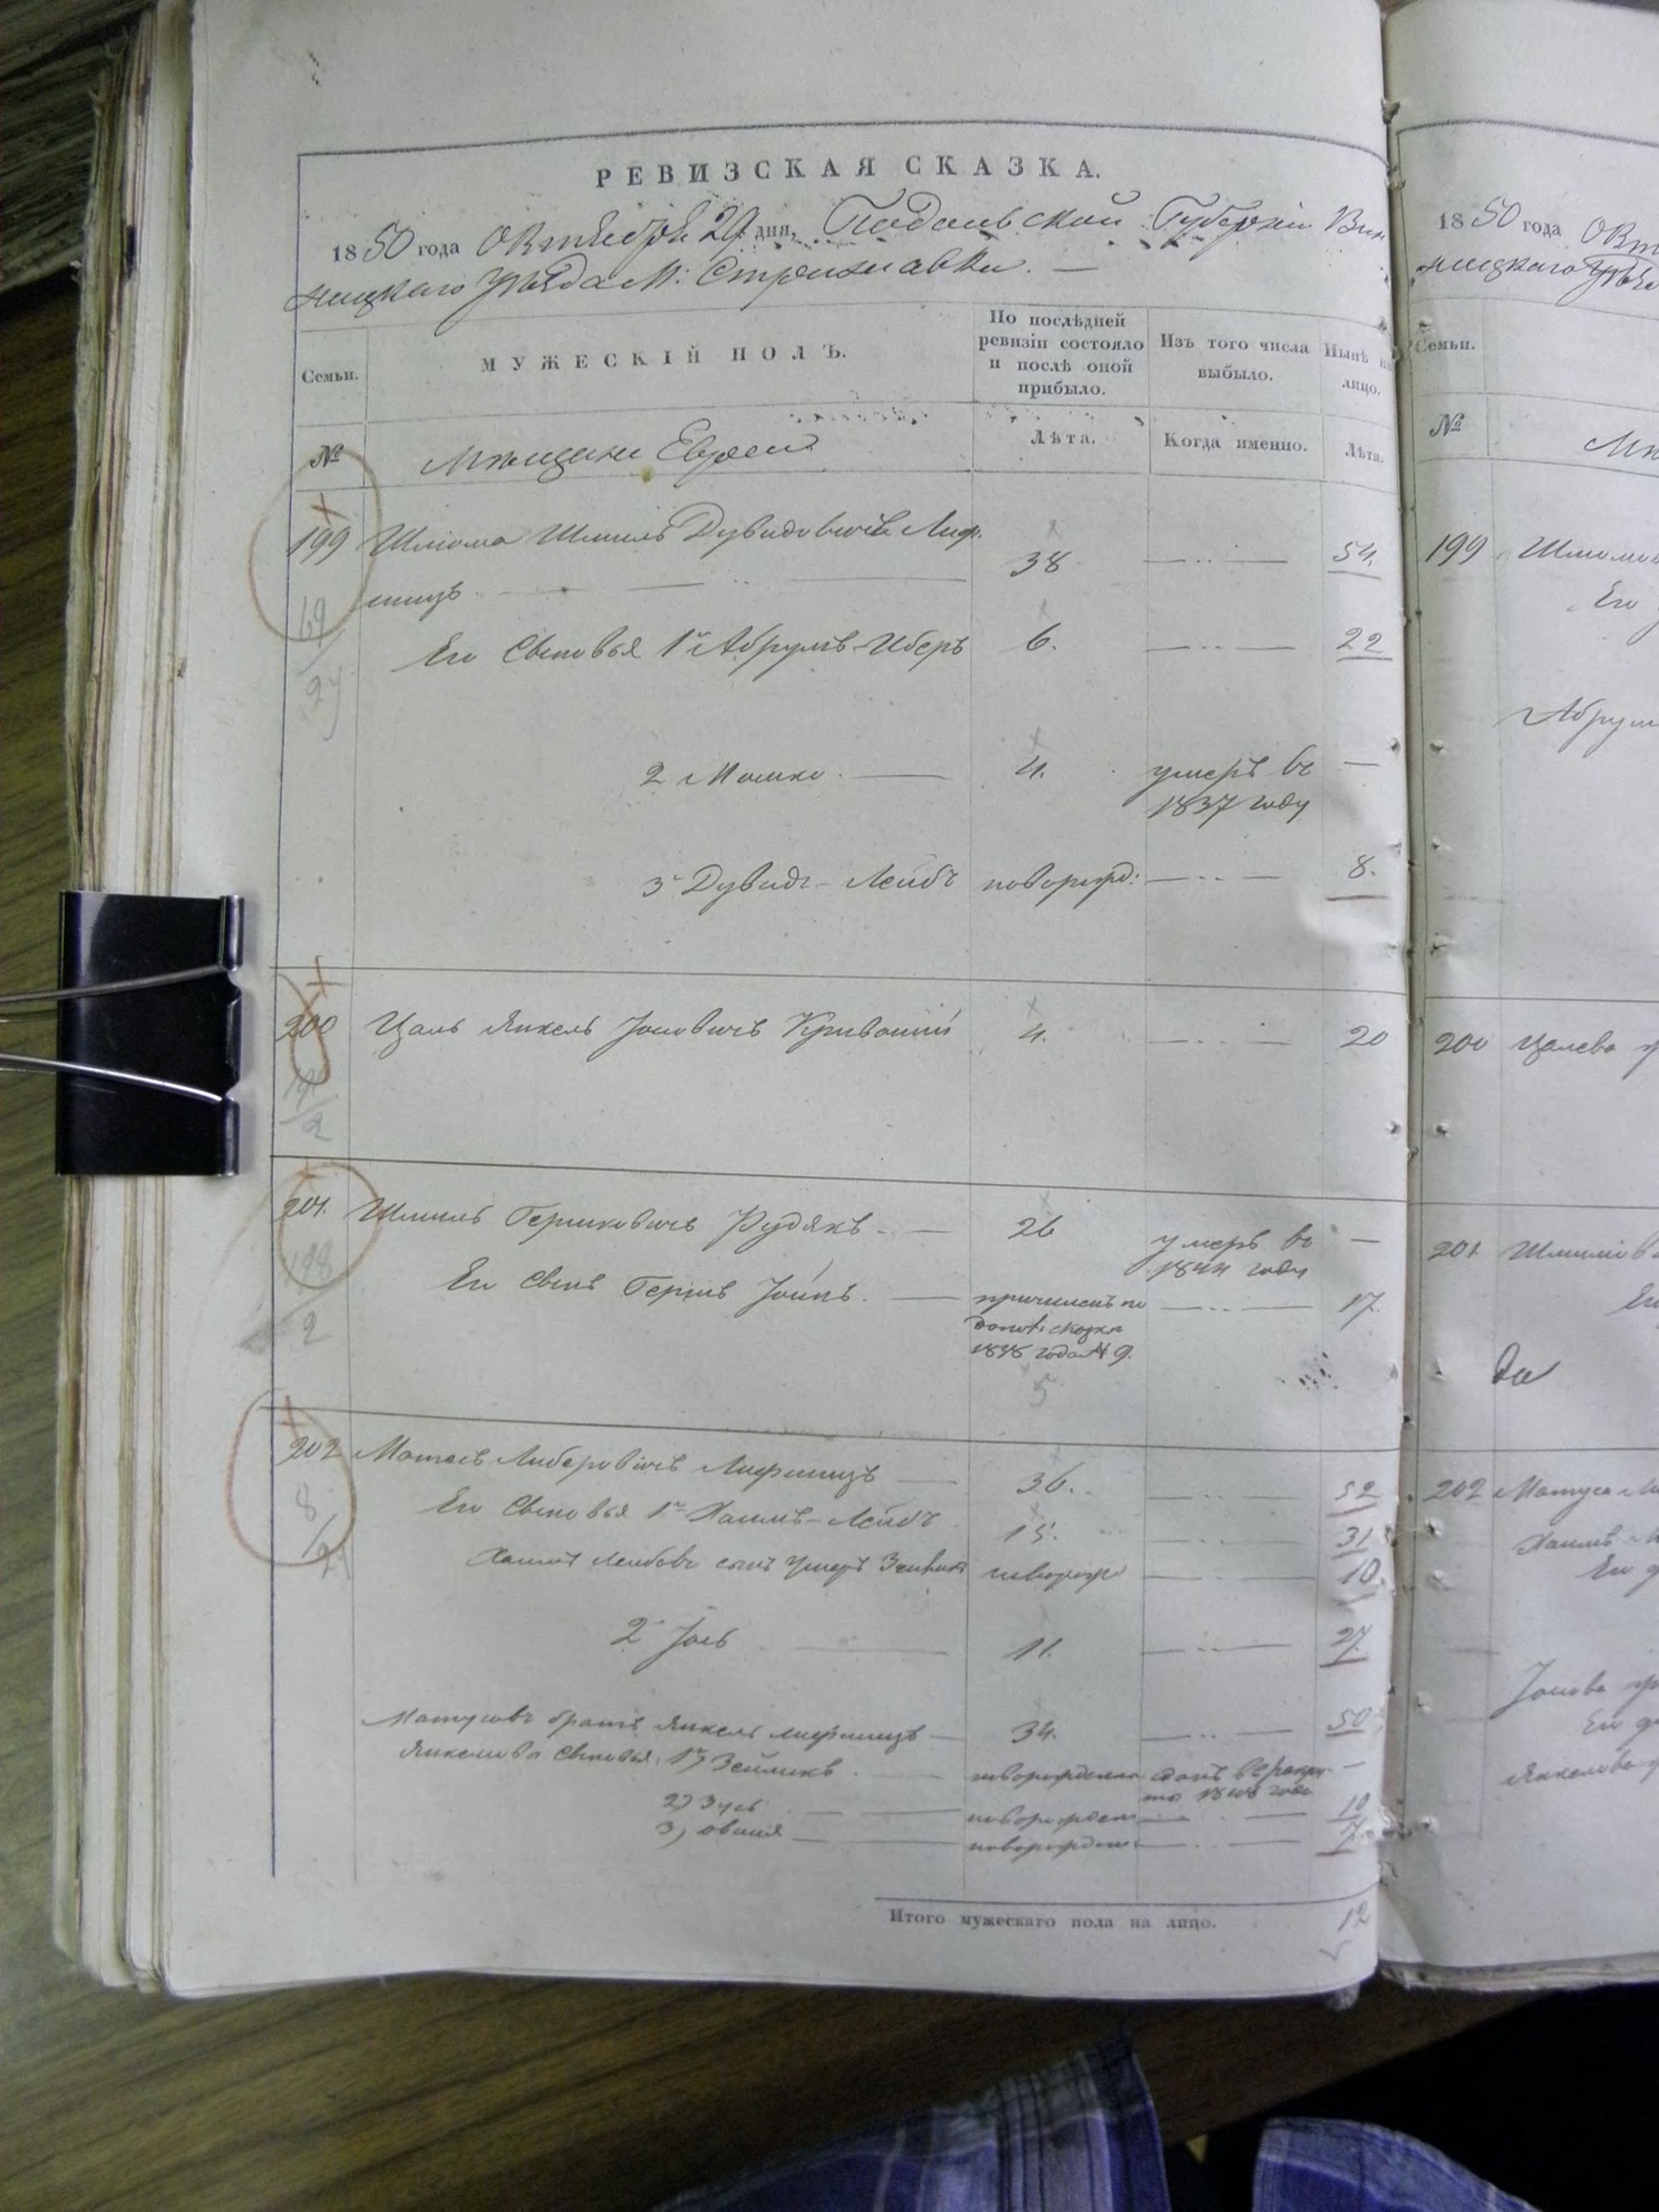 РЕВИЗСКАЯ СКАЗКА.
1850 года Октября 29 дня, Подольской Губерніи Вин
ницкаго Уѣзда М: Стрижавки. —
Семьи.
МУЖЕСКІЙ ПОЛЪ.
По послѣдней ревизіи состояло и послѣ оной прибыло.
Изъ того числа выбыло.
Нынѣ на лицо.
№
Мѣщане Евреи
Лѣта.
Когда именно.
Лѣта.
199 Шлiома Шмиль Дувидовичъ Лиф. 38 54.
шицъ
69
Его Сыновья 1й Абрумъ-Иберъ 6. 22
2 Мошко 4. умеръ въ —
1837 году
3й Дувидъ-Лейбъ новорожд: 8.
200 Цаль Янкель Іосіовичъ Кривошій 4. 20
2
201. Шмиль Гершковичъ Рудякъ 26 умеръ въ —
1844 году
198
Его Сынъ Гершъ Іойнъ. причисленъ по 17.
2
допол: сказкѣ
1838 года № 9.
5
202 Матесъ Либеровичъ Лифшицъ 36. 52
8
Его Сыновья 1й Хаимъ-Лейбъ 15. 31
Хаимъ Лейбовъ сынъ новорож 10.
2й Іось 11. 27.
Матусовъ братъ Янкель Лифшицъ 34. 50
Янкелевы Сыновья 1й) Зейликъ. новорожденъ сданъ въ рекру —
ты 1848 году
2) Зусь новорожден 10
3) Овшія новорожден 7.
Итого мужескаго пола на лицо. 12
1850 года Окт
ницкаго Уѣзд
Семьи.
№
Мѣ
199 Шліомов
Его
Абрум
200 Цалева
201 Шмилів
Его
202 Матуса
Хаимъ
Его д
Іосіова
Его д
Янкелева